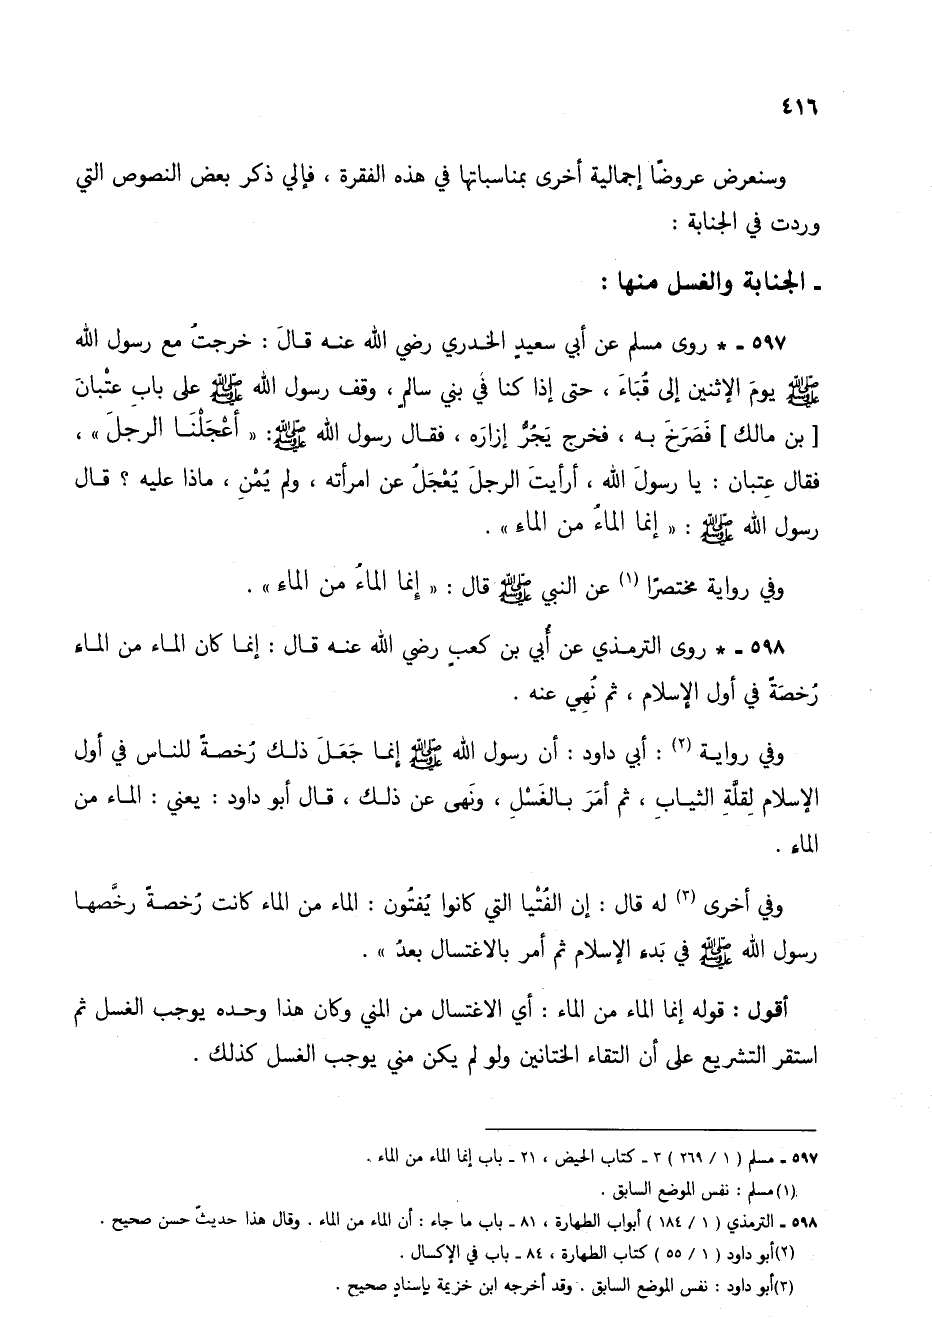 ٤١٦
وسنعرض عروضًا إجمالية أخرى بمناسباتها في هذه الفقرة ، فإلي ذكر بعض النصوص التي
وردت في الجنابة :
ـ الجنابة والغسل منها :
٥٩٧ ـ * روى مسلم عن أبي سعيدٍ الخدري رضي الله عنه قالَ : خرجتُ مع رسول الله
ﷺ يومَ الإثنين إلى قُبَاءَ ، حتى إذا كنا في بني سالمٍ ، وقف رسول الله ﷺ على بابِ عتْبانَ
[ بن مالك ] فَصَرَخَ به ، فخرج يَجُرُّ إزارَه ، فقال رسول الله ﷺ: « أعْجَلْنَا الرجلَ » ،
فقال عتبان : يا رسولَ الله ، أرأيتَ الرجلَ يُعْجَلُ عن امرأته ، ولم يُمْنِ ، ماذا عليه ؟ قال
رسول الله ﷺ : « إنما الماءُ من الماءِ » .
وفي رواية مختصرًا (١) عن النبي ﷺ قال : « إنما الماءُ من الماء » .
٥٩٨ ـ * روى الترمذي عن أُبي بن كعبٍ رضي الله عنه قال : إنما كان الماء من الماء
رُخصَةً في أول الإسلام ، ثم نُهِي عنه .
وفي رواية (٢) : أبي داود : أن رسول الله ﷺ إنما جَعَلَ ذلك رُخصةً للناس في أول
الإسلام لِقلَّةِ الثيابِ ، ثم أمَرَ بالغَسْلِ ، ونَهى عن ذلك ، قال أبو داود : يعني : الماء من
الماء .
وفي أخرى (٣) له قال : إن الفُتْيا التي كانوا يُفتُون : الماء من الماء كانت رُخصةً رخَّصها
رسول الله ﷺ في بَدء الإسلام ثم أمر بالاغتسال بعدُ » .
أقول : قوله إنما الماء من الماء : أي الاغتسال من المني وكان هذا وحده يوجب الغسل ثم
استقر التشريع على أن التقاء الختانين ولو لم يكن مني يوجب الغسل كذلك .
٥٩٧ ـ مسلم ( ١ / ٢٦٩ ) ٣ ـ كتاب الحيض ، ٢١ ـ باب إنما الماء من الماء .
(١) مسلم : نفس الموضع السابق .
٥٩٨ ـ الترمذي ( ١ / ١٨٤ ) أبواب الطهارة ، ٨١ ـ باب ما جاء : أن الماء من الماء . وقال هذا حديثٌ حسن صحيح .
(٢) أبو داود ( ١ / ٥٥ ) كتاب الطهارة ، ٨٤ ـ باب في الإكسال .
(٣) أبو داود : نفس الموضع السابق . وقد أخرجه ابن خزيمة بإسنادٍ صحيح .